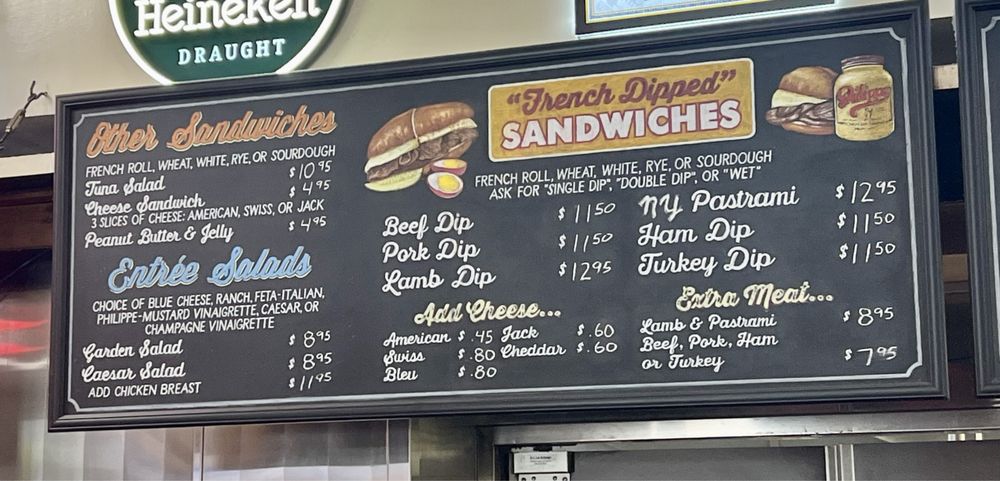 Heineken
DRAUGHT
Other Sandwiches
FRENCH ROLL, WHEAT, WHITE, RYE, OR SOURDOUGH
Tuna Salad $10 95
Cheese Sandwich $4 95
3 SLICES OF CHEESE: AMERICAN, SWISS, OR JACK
Peanut Butter & Jelly $4 95
Entrée Salads
CHOICE OF BLUE CHEESE, RANCH, FETA-ITALIAN,
PHILIPPE-MUSTARD VINAIGRETTE, CAESAR, OR
CHAMPAGNE VINAIGRETTE
Garden Salad $8 95
Caesar Salad $8 95
ADD CHICKEN BREAST $11 95
"French Dipped"
SANDWICHES
FRENCH ROLL, WHEAT, WHITE, RYE, OR SOURDOUGH
ASK FOR "SINGLE DIP", "DOUBLE DIP", OR "WET"
Beef Dip $11 50
Pork Dip $11 50
Lamb Dip $12 95
Add Cheese...
American $.45 Jack $.60
Swiss $.80 Cheddar $.60
Bleu $.80
NY Pastrami $12 95
Ham Dip $11 50
Turkey Dip $11 50
Extra Meat...
Lamb & Pastrami $8 95
Beef, Pork, Ham
or Turkey $7 95
Philippe